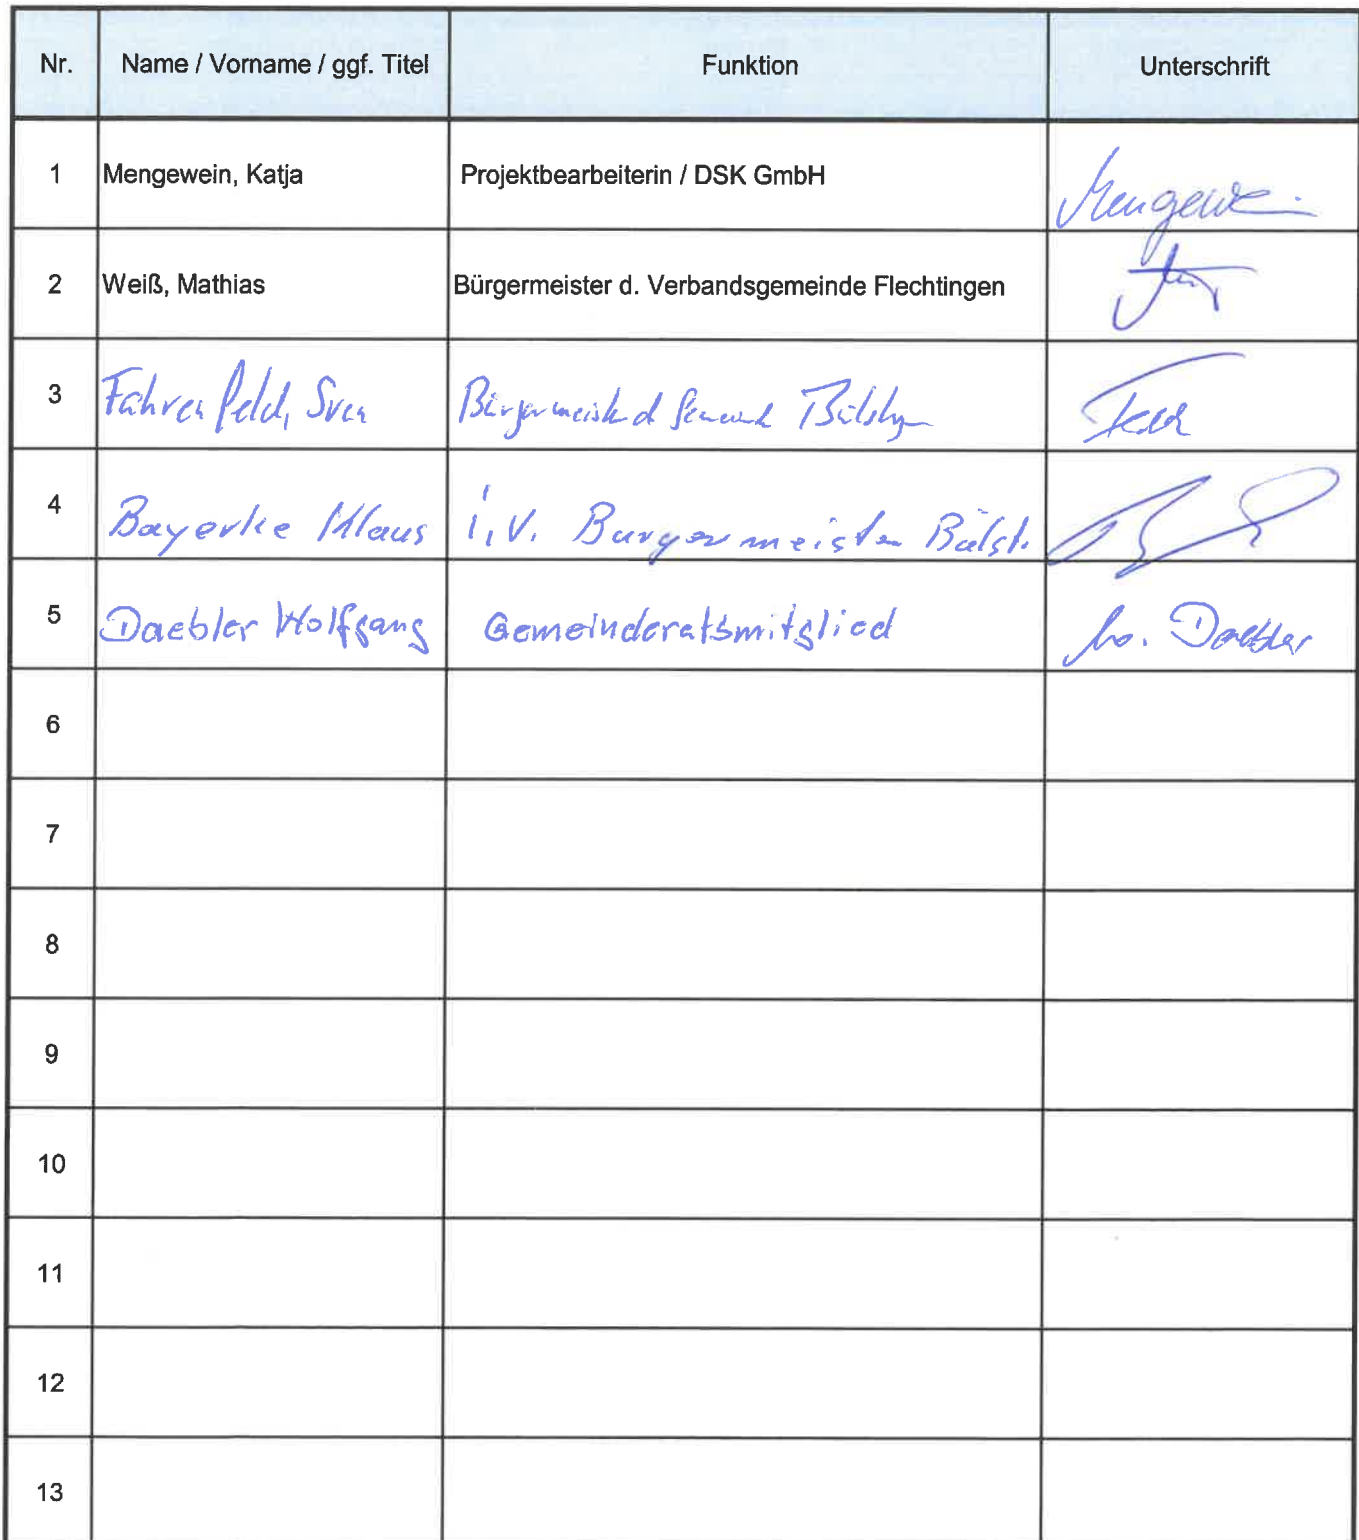 Nr. Name / Vorname / ggf. Titel Funktion Unterschrift
1 Mengewein, Katja Projektbearbeiterin / DSK GmbH Mengewei
2 Weiß, Mathias Bürgermeister d. Verbandsgemeinde Flechtingen
3 Fahrenfeld, Sven Bürgermeister d
4 Bayerke Klaus i.V. Burgermeister Bülst.
5 Daebler Wolfgang Gemeinderatsmitglied Wo. Daebler
6
7
8
9
10
11
12
13